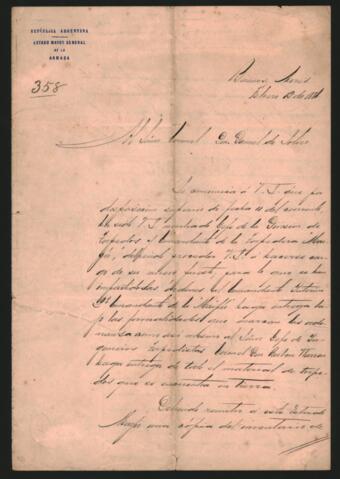 REPÚBLICA ARGENTINA
ESTADO MAYOR GENERAL
DE LA
ARMADA
358
Buenos Aires
Febrero 13 de 18
Al Señor Coronel Don Daniel de Solier
Se comunica á V.S. que por
disposicion superior de fecha 11 del corriente
ha sido V.S. nombrado Jefe de la Division de
Torpedos y Comandante de la torpedera Mai-
pú, debiendo proceder V.S. á hacerse car-
go de su nuevo puesto, para lo que se han
impartido las órdenes al Comandante
Comandante de la Maipú haga entrega ba-
jo las formalidades que marcan las orde-
nanzas como asi mismo al Señor Jefe de In-
genieros Torpedistas Coronel Don
haga entrega de todo el material de torpe-
dos que se encuentra en tierra.
Debiendo remitir á este Estado
Mayor una cópia del inventario de